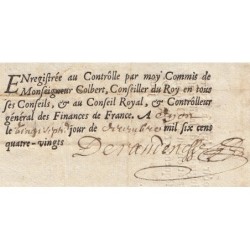 ENregistrée au Contrôlle par moy Commis de
Monsaigneur Colbert, Conseiller du Roy en tous
ses Conseils, & au Conseil Royal, & Contrôlleur
général des Finances de France. A Dijon
le vingt sept jour de decembre mil six cens
quatre-vingts